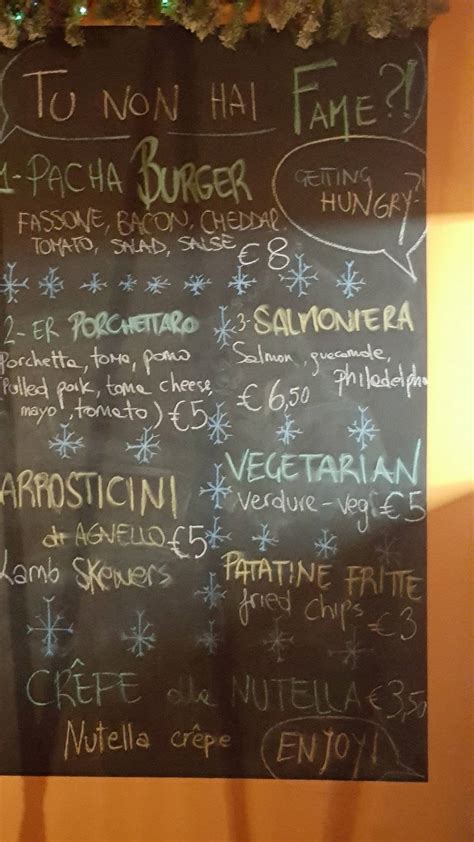 TU NON HAI FAME?!
1-PACHA BURGER
FASSONE, BACON, CHEDDAR,
TOMATO, SALAD, SALSE €8
GETTING
HUNGRY?!
2- ER PORCHETTARO
Porchetta, toma, pomo
(Pulled pork, toma cheese,
mayo, tomato) €5
3-SALMONIERA
Salmon, guacamole,
Philadelphia
€6,50
ARROSTICINI
di AGNELLO €5
Lamb Skewers
VEGETARIAN
verdure-veg €5
PATATINE FRITTE
fried chips €3
CRÊPE alla NUTELLA €3,50
Nutella crêpe
ENJOY!